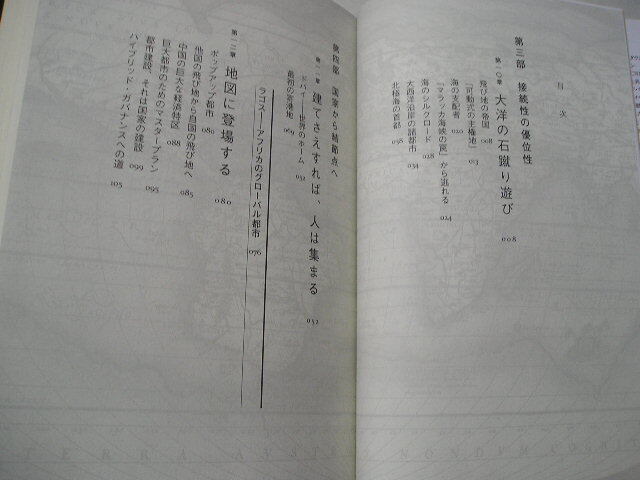 目次
第三部 接続性の優位性
第一〇章 大洋の石蹴り遊び 008
飛び地の帝国 008
「可動式の主権地」 013
海の支配者 020
「マラッカ海峡の罠」から逃れる 024
海のシルクロード 028
大西洋沿岸の諸都市 034
北極海の首都 038
第四部 国家から結節点へ
第一一章 建てさえすれば、人は集まる 052
ドバイ――世界のホーム 052
最初の寄港地 069
ラゴス――アフリカのグローバル都市 076
第一二章 地図に登場する 080
ポップアップ都市 080
他国の飛び地から自国の飛び地へ
中国の巨大な経済特区 088
巨大都市のためのマスタープラン 095
都市建設、それは国家の建設 099
ハイブリッド・ガバナンスへの道 105
TERRA AVSTRALIS NONDVM COGNIT